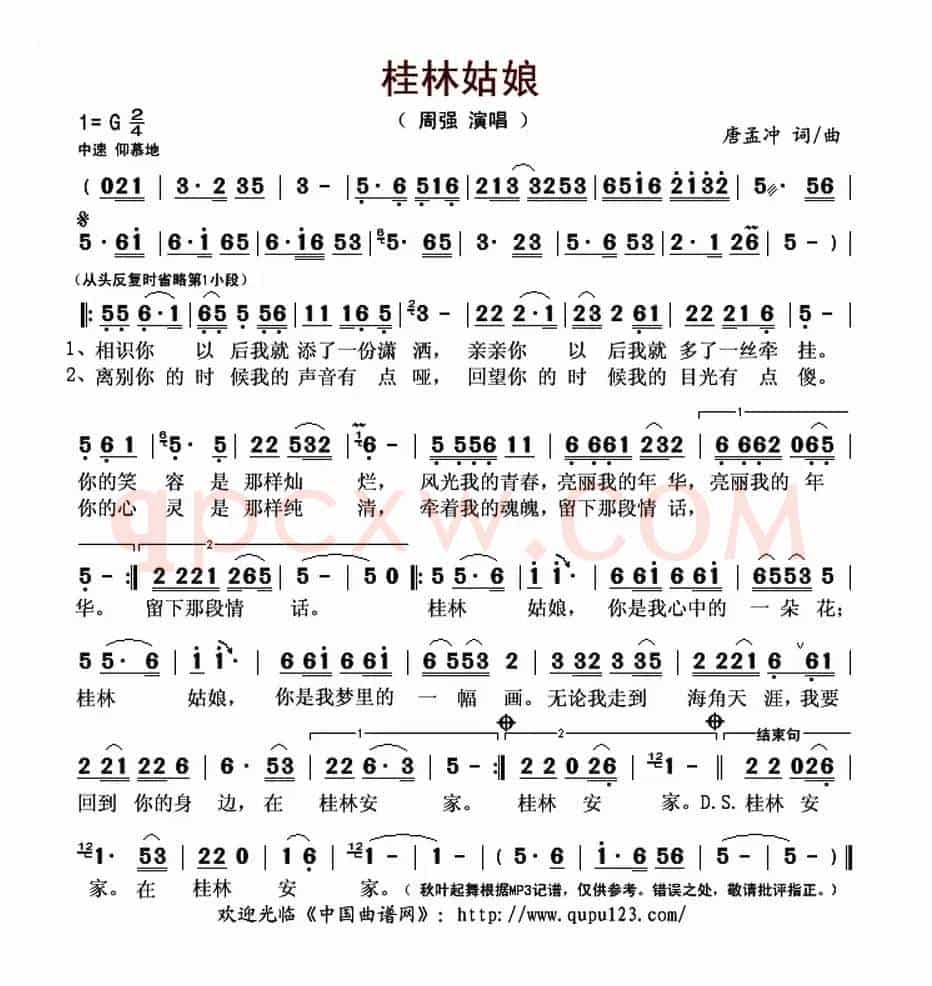 桂林姑娘
（ 周强 演唱 ）
1= G 2/4
中速 仰慕地
唐孟冲 词/曲
( 021 | 3· 2 35 | 3 - | 5· 6 516 | 213 3253 | 6516 2132 | 5· 56 |
5· 61 | 6·1 65 | 6·16 53 | 6 5· 65 | 3· 23 | 5· 6 53 | 2· 1 26 | 5 - ) |
（从头反复时省略第1小段）
‖: 55 6·1 | 65 5 56 | 11 16 5 | 2 3 - | 22 2·1 | 23 2 61 | 22 21 6 | 5 - |
1、相识你 以 后我就 添了一份潇 洒，亲亲你 以 后我就 多了一丝牵 挂。
2、离别你 的 时 候我的 声音有 点 哑，回望你 的 时 候我的 目光有 点 傻。
1
5 61 | 6 5· 5 | 22 532 | 16 6 - | 5 556 11 | 6 661 232 | 6 662 065 |
你的笑 容 是 那样灿 烂， 风光我的青春，亮丽我的年 华，亮丽我的 年
你的心 灵 是 那样纯 清， 牵着我的魂魄，留下那段情 话，
qpcxw.COM
2
5 - :‖ 2 221 265 | 5 - | 5 0 ‖: 5 5·6 | 1 1· | 661 661 | 6553 5 |
华。 留下那段情 话。 桂林 姑娘， 你是我心中的 一 朵 花；
5 5· 6 | 1 1· | 661 661 | 6 553 2 | 335 3 35 | 2 221 6 61 |
桂林 姑娘， 你是我梦里的 一 幅 画。无论我走到 海角天 涯，我要
1 2 结束句
2 21 22 6 | 6· 53 | 22 6·3 | 5 - :‖ 22 0 26 | 12 1 - ‖ 22 026 |
回到 你的身 边，在 桂林安 家。 桂林 安 家。D.S.桂林 安
12 1· 53 | 22 0 | 1 6 | 12 1 - | 1 - | ( 5· 6 | 1·6 56 | 5 - ) ‖
家。在 桂林 安 家。（ 秋叶起舞根据MP3记谱，仅供参考。错误之处，敬请批评指正。）
欢迎光临《中国曲谱网》: http://www.qupu123.com/